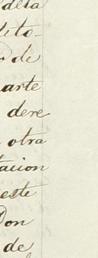 delta
dito-
de
arte
dere
otra
tacion
este
Don
de